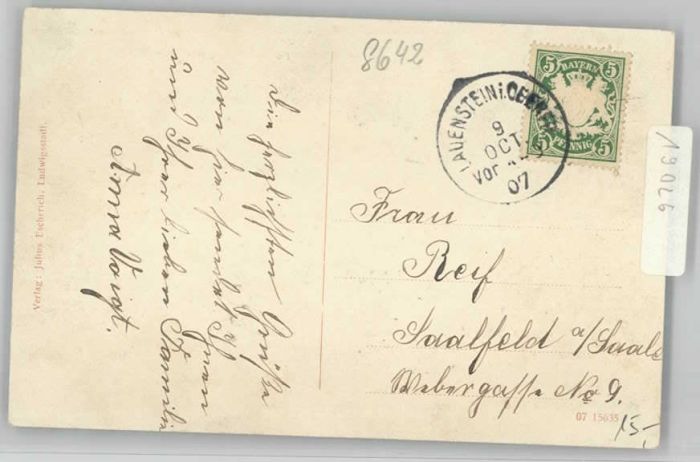 8642
5 BAYERN 5
5 PFENNIG 5
LAUENSTEIN i.
9
OCT
VOR
07
19026
Die herzlichsten Grüße
von hier sendet Ihnen
und Ihrer lieben Familie
Anna Voigt.
Frau
Reif
Saalfeld a/Saale
Webergasse No 9.
Verlag: Julius Escherich, Ludwigsstadt.
07 15635
15,-